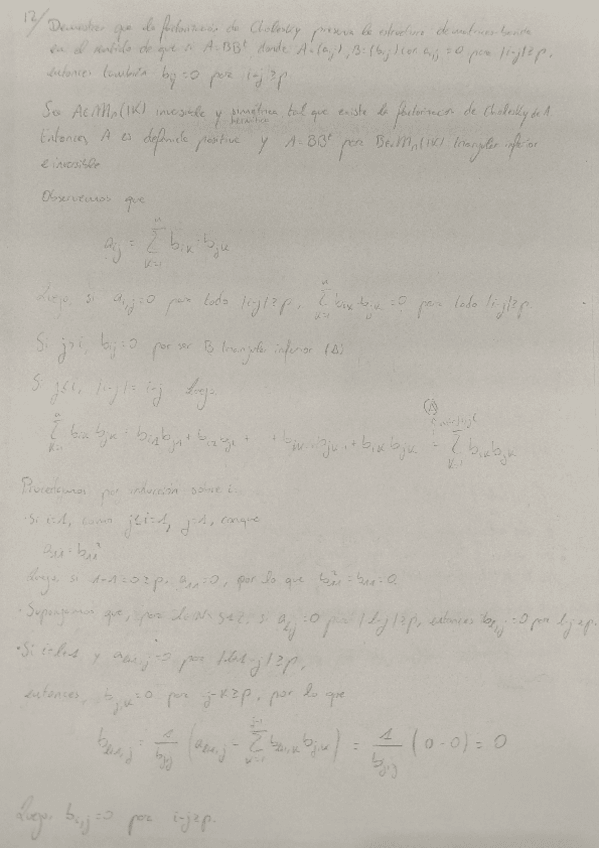 12/ Demostrar que la factorización de Cholesky preserva la estructura de matrices banda
en el sentido de que si A=BBᵗ donde A=(aᵢⱼ), B=(bᵢⱼ) con aᵢⱼ=0 para |i-j|≥p,
entonces también bᵢⱼ=0 para i-j≥p.
Sea A∈Mₙ(IK) inversible y simétrica tal que existe la factorización de Cholesky de A.
Entonces A es definida positiva y A=BBᵗ para B∈Mₙ(IK) triangular inferior
e inversible.
Observemos que
aᵢⱼ = Σₖ₌₁ⁿ bᵢₖ bⱼₖ
Luego, si aᵢⱼ=0 para todo |i-j|≥p, Σₖ₌₁ⁿ bᵢₖ bⱼₖ =0 para todo |i-j|≥p
Si j>i, bᵢⱼ=0 por ser B triangular inferior (Δ)
Si j≤i, |i-j|=i-j. Luego
Σₖ₌₁ⁿ bᵢₖ bⱼₖ = bᵢ₁bⱼ₁ + bᵢ₂bⱼ₂ + + bᵢₖ bⱼₖ = Σ bᵢₖbⱼₖ
Procedamos por inducción sobre i.
·Si i=1, como j≤i=1, j=1, con que
a₁₁=b₁₁²
Luego si 1-1=0≥p, a₁₁=0, por lo que b₁₁²=b₁₁=0.
·Supongamos que, para si aᵢⱼ=0 para |i-j|≥p, entonces bᵢⱼ=0 por i-j≥p.
·Si y =0 para ≥p,
entonces, bⱼₖ=0 para j-k≥p, por lo que
= 1/bⱼⱼ ( - Σₖ₌₁ʲ⁻¹ bⱼₖ ) = 1/bⱼⱼ (0-0) = 0
Luego, bᵢ,ⱼ=0 para i-j≥p.